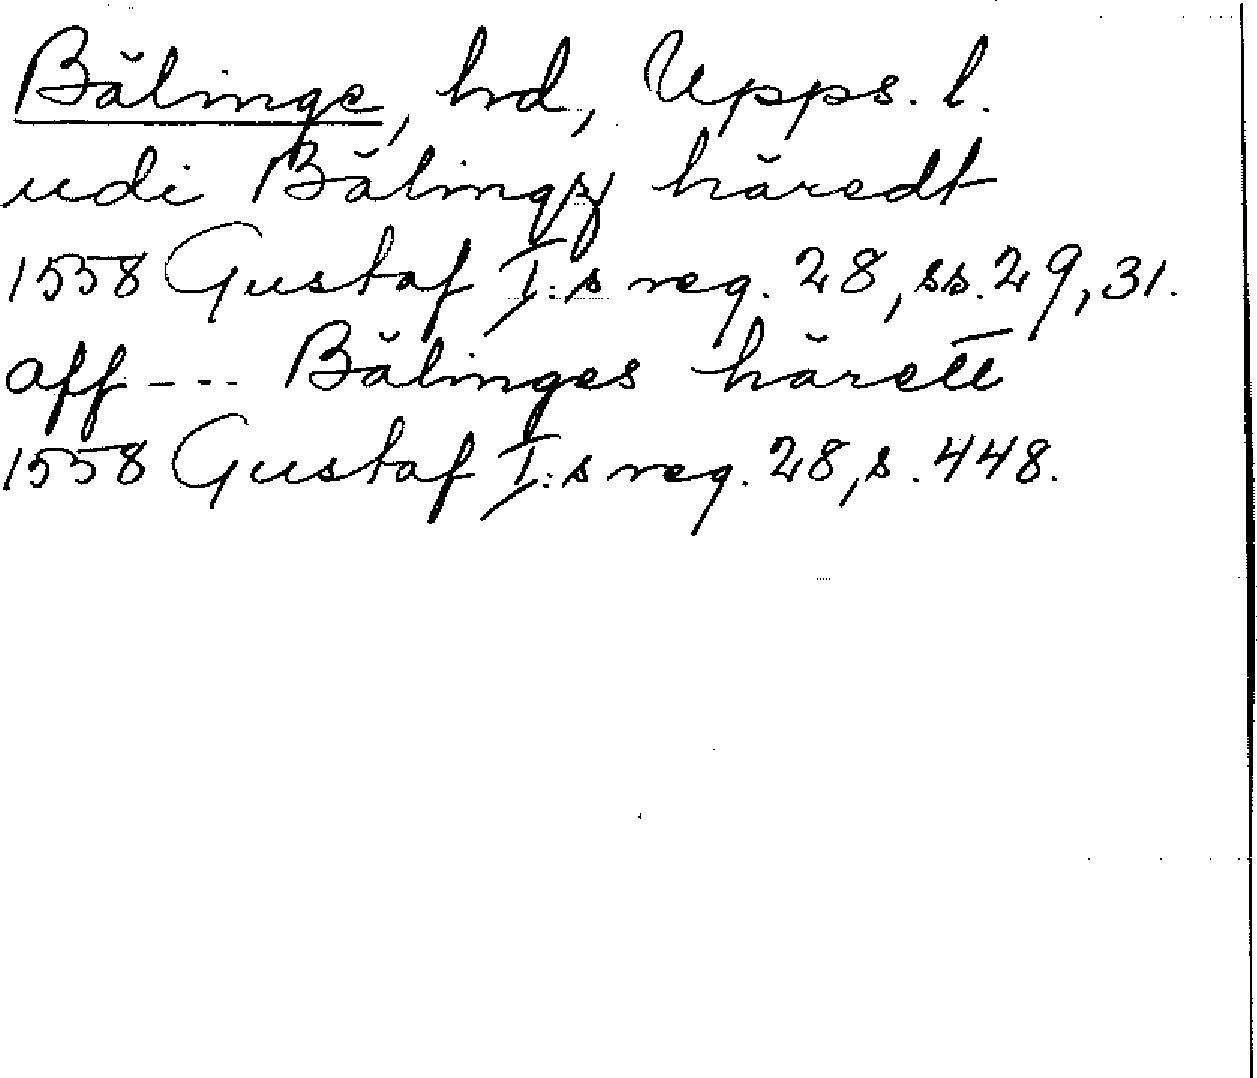 Bälinge, hd, Upps. l.
udi Bälingz häredt
1558 Gustaf I:s reg. 28, ss. 29, 31.
aff --- Bälinges härett
1558 Gustaf I:s reg. 28, s. 448.